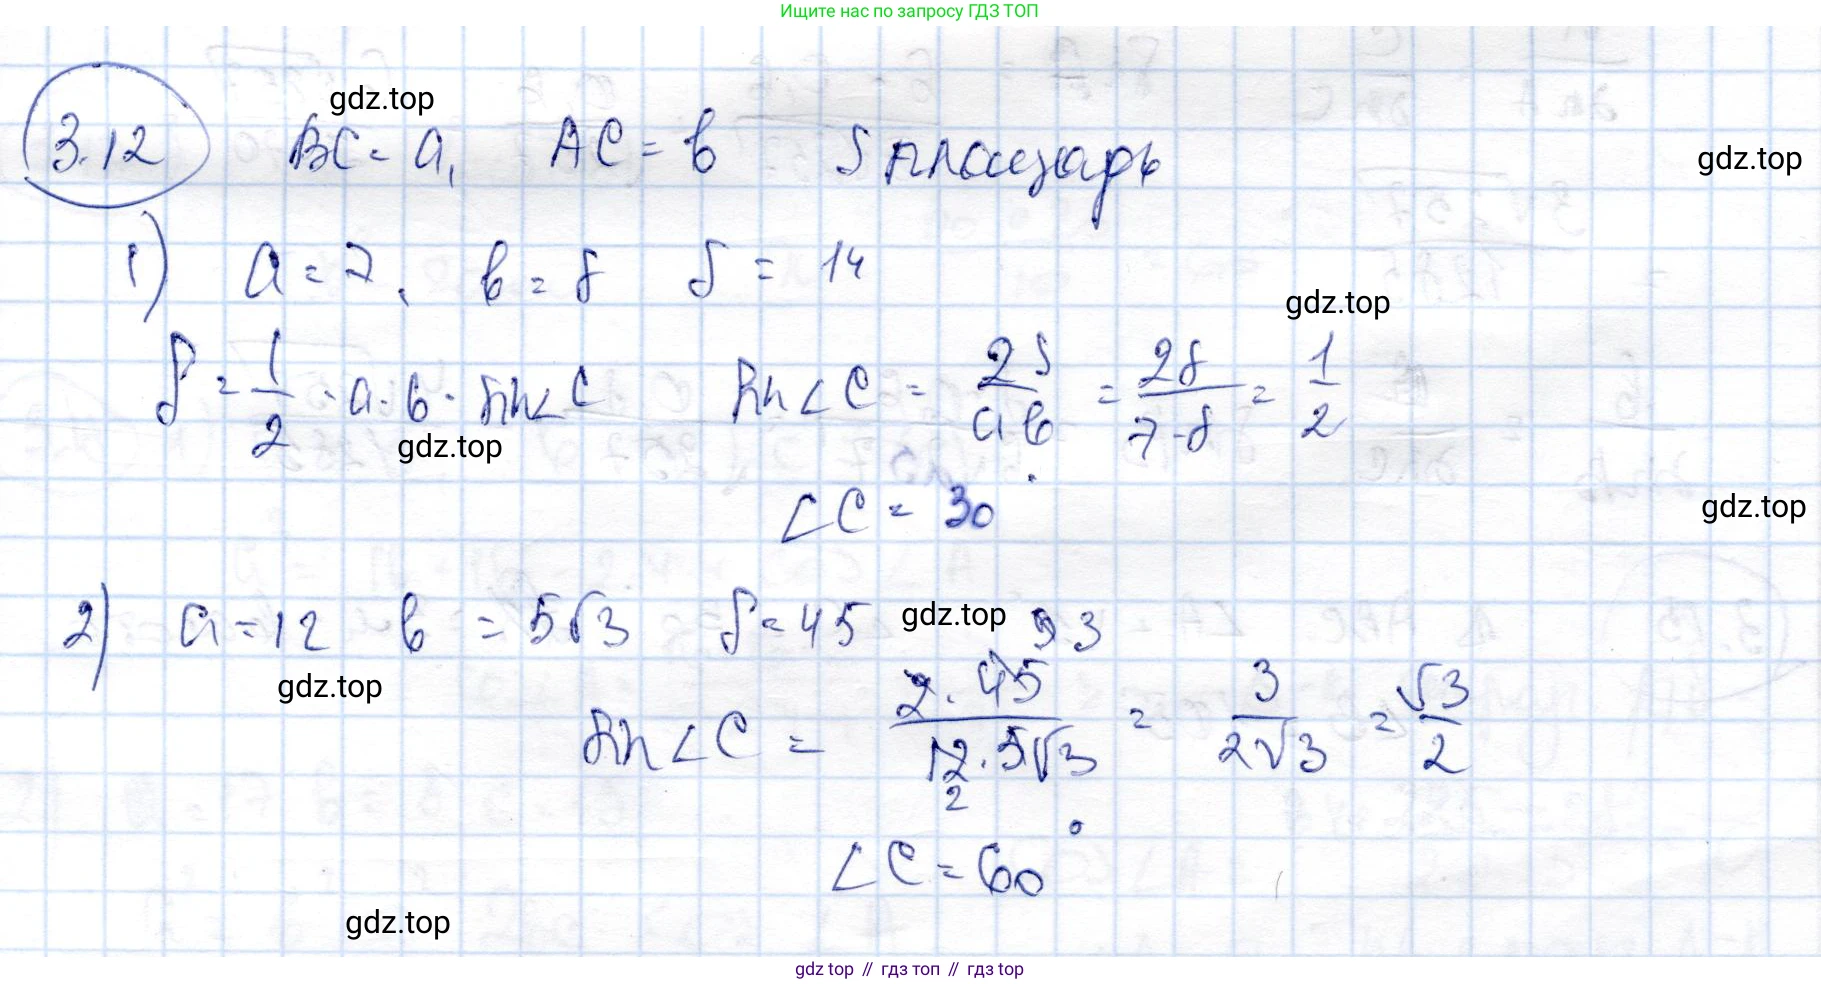 Ищите нас по запросу ГДЗ ТОП
gdz.top
3.12 BC = a, AC = b S площадь
gdz.top
1) a = 7, b = 8 S = 14
gdz.top
S = 1/2 · a · b · sin∠C sin∠C = 2S/ab = 28/7·8 = 1/2
gdz.top
∠C = 30°
gdz.top
2) a = 12 b = 5√3 S = 45
gdz.top
9 3
gdz.top
sin∠C = 2·45/12·5√3 = 3/2√3 = √3/2
2
∠C = 60°
gdz.top
gdz top // гдз топ // гдз top